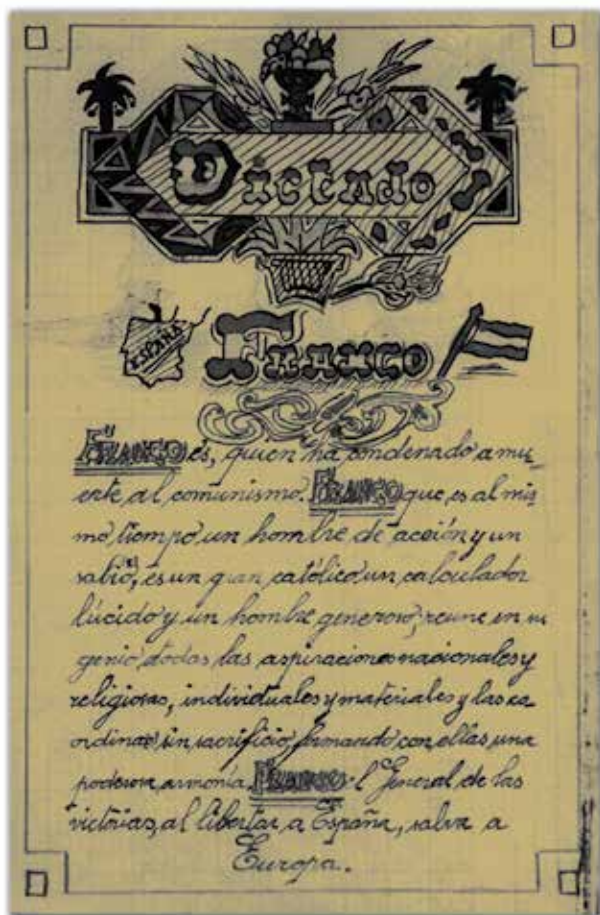 Dictado
ESPAÑA
FRANCO
FRANCO es, quien ha condenado a mu_
erte al comunismo. FRANCO que, es al mis_
mo tiempo un hombre de acción y un
sabio, es un gran católico un calculador
lúcido y un hombre generoso, reune en su
genio todas las aspiraciones nacionales y
religiosas, individuales y materiales y las co
ordina sin sacrificio formando con ellas una
poderosa armonía. FRANCO l General de las
victorias, al libertar a España, salva a
Europa.